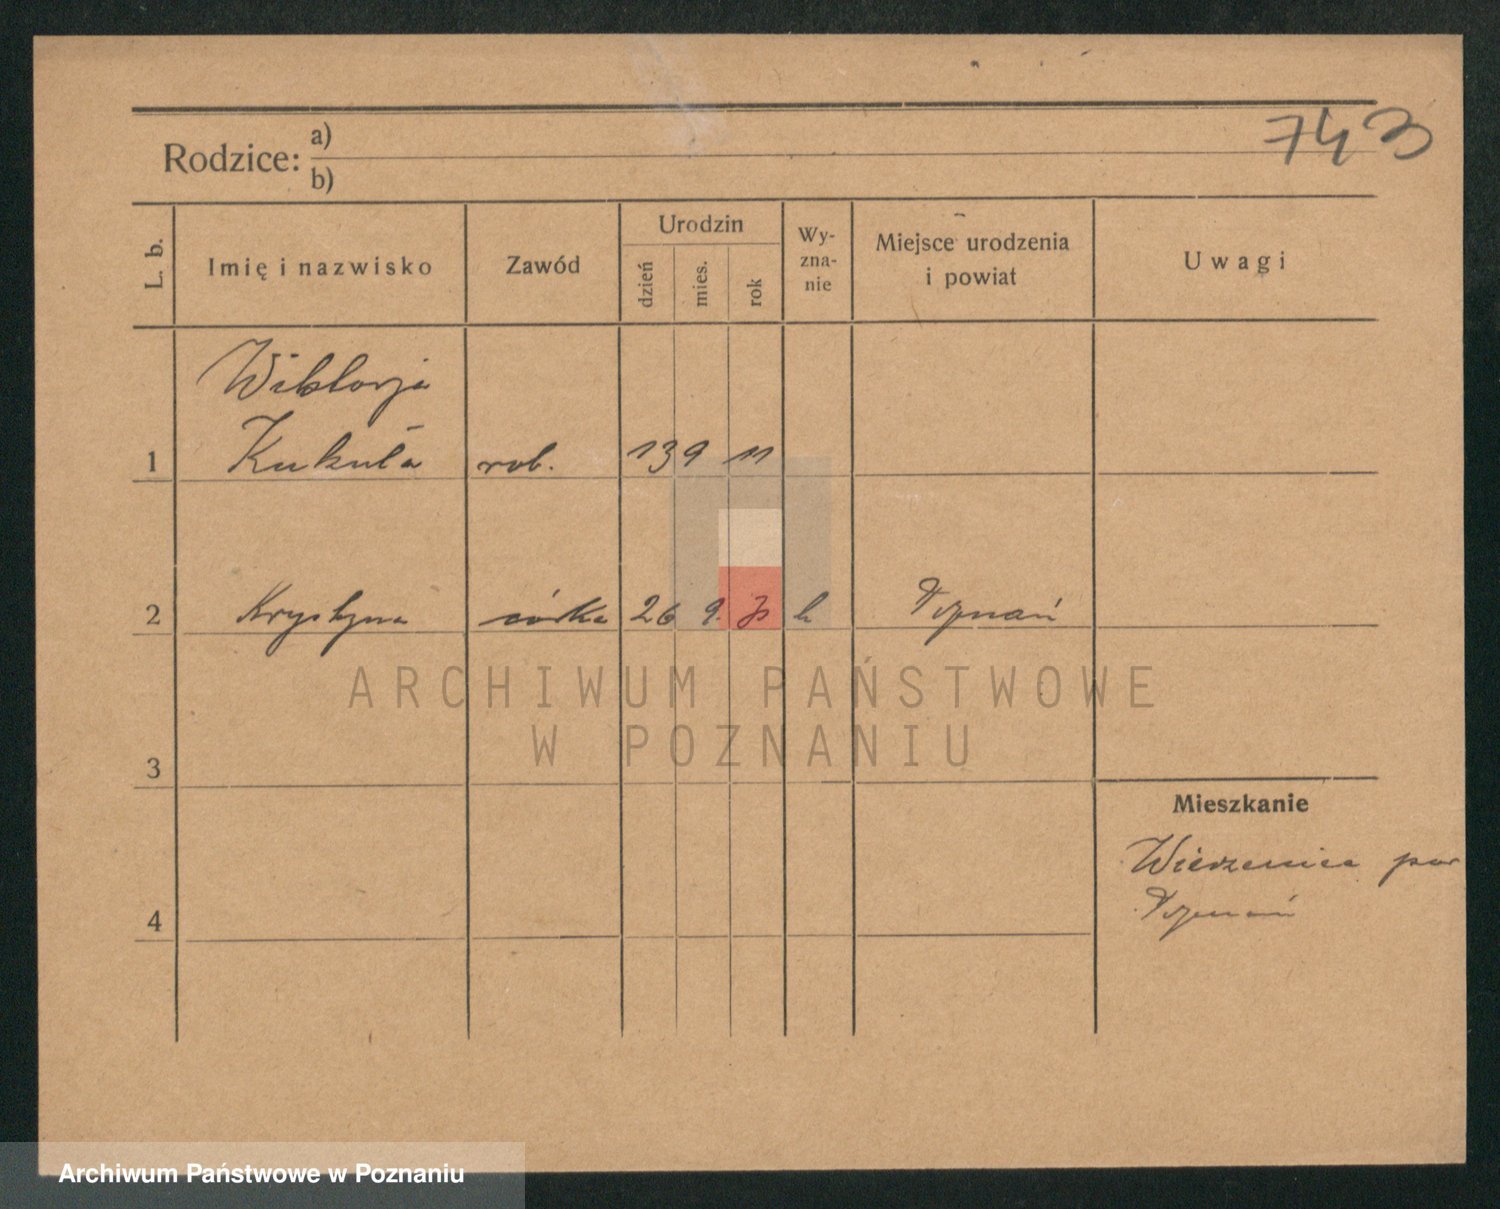 743
Rodzice: a)
b)
L. b. Imię i nazwisko Zawód Urodzin dzień mies. rok Wy-zna-nie Miejsce urodzenia i powiat Uwagi
Wiktorja
1 Kukuła rob. 13 9 11
2 Krystyna córka 26 9. k Poznań
ARCHIWUM PAŃSTWOWE
W POZNANIU
3
Mieszkanie
Wierzenica pow
Poznań
4
Archiwum Państwowe w Poznaniu